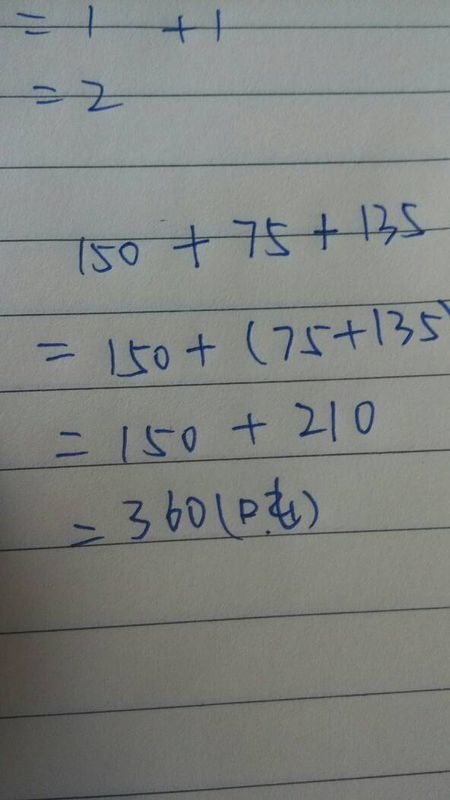 = 1 + 1
= 2
150 + 75 + 135
= 150 + (75 + 135)
= 150 + 210
= 360 (吨)